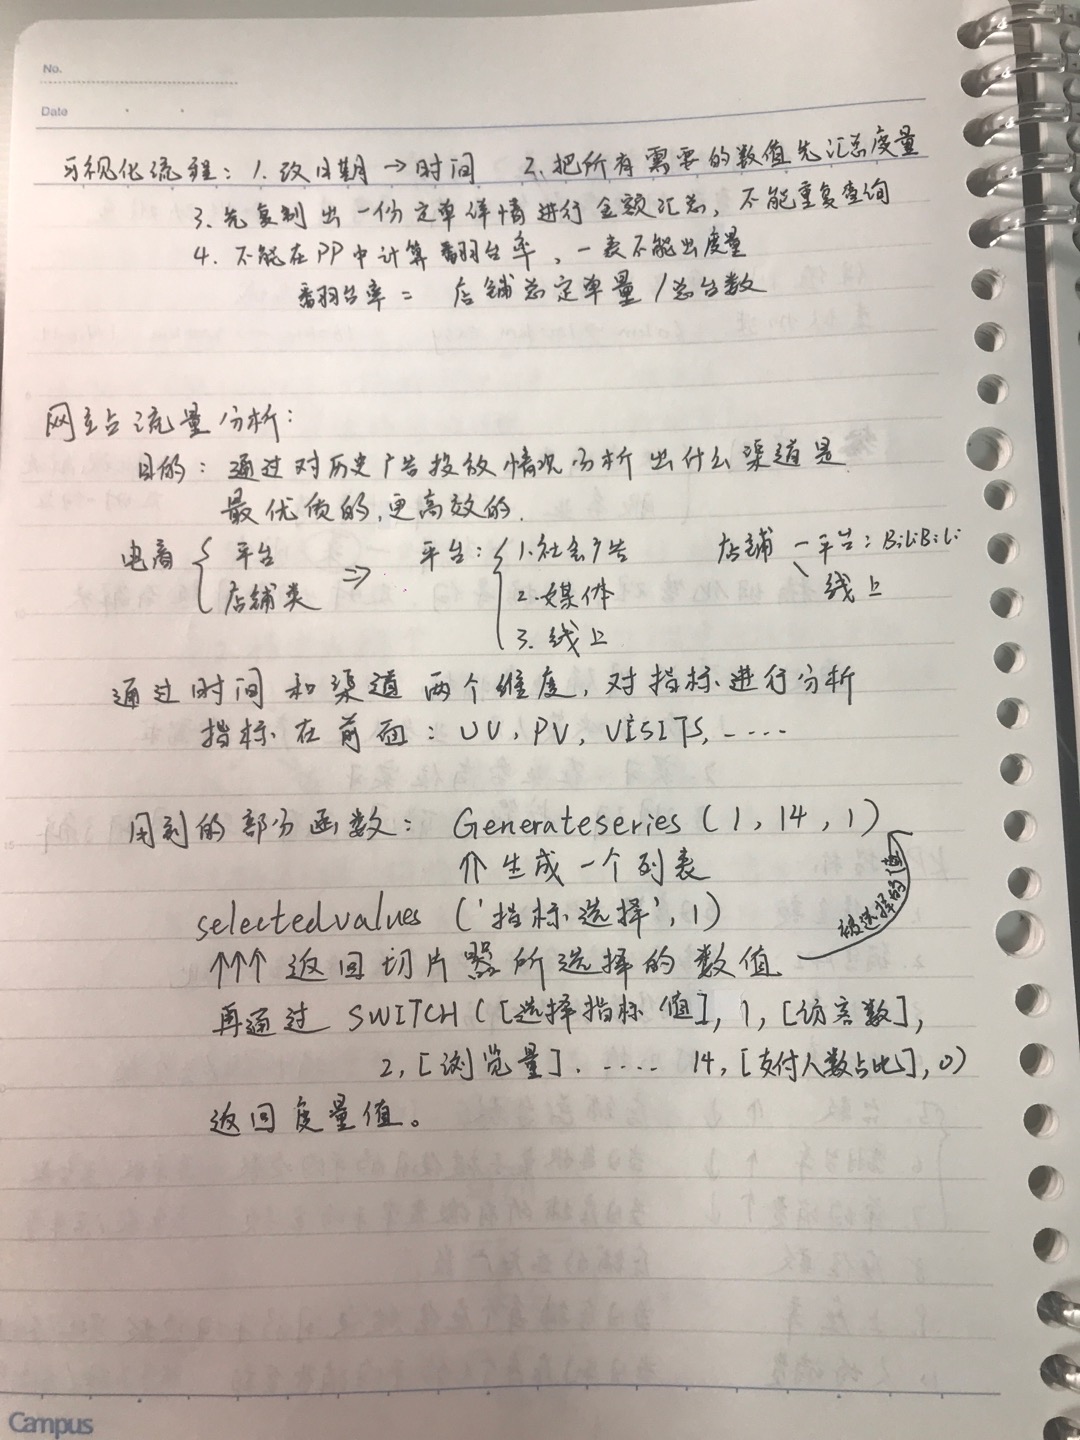 No.
Date
可视化流程：1.改日期→时间 2.把所有需要的数值先汇总度量
3.先复制出一份定单详情进行金额汇总，不能重复查询
4.不能在PP中计算翻台率，一表不能出度量
翻台率＝ 店铺总定单量/总台数
网站流量分析：
目的：通过对历史广告投放情况分析出什么渠道是
最优质的,更高效的.
电商 { 平台 店铺类 ⇒ 平台：{ 1.社会广告 2.媒体 3.线上
店铺 — 平台：BiLiBiLi
线上
通过时间和渠道两个维度,对指标进行分析
指标在前面：UV，PV，VISITS，-····
用到的部分函数：Generateseries(1,14,1)
⇑生成一个列表
selectedvalues('指标选择',1)
被选择的值
↑↑↑返回切片器所选择的数值
再通过SWITCH([选择指标值],1,[访客数],
2,[浏览量].····· 14,[支付人数占比],0)
返回度量值。
Campus